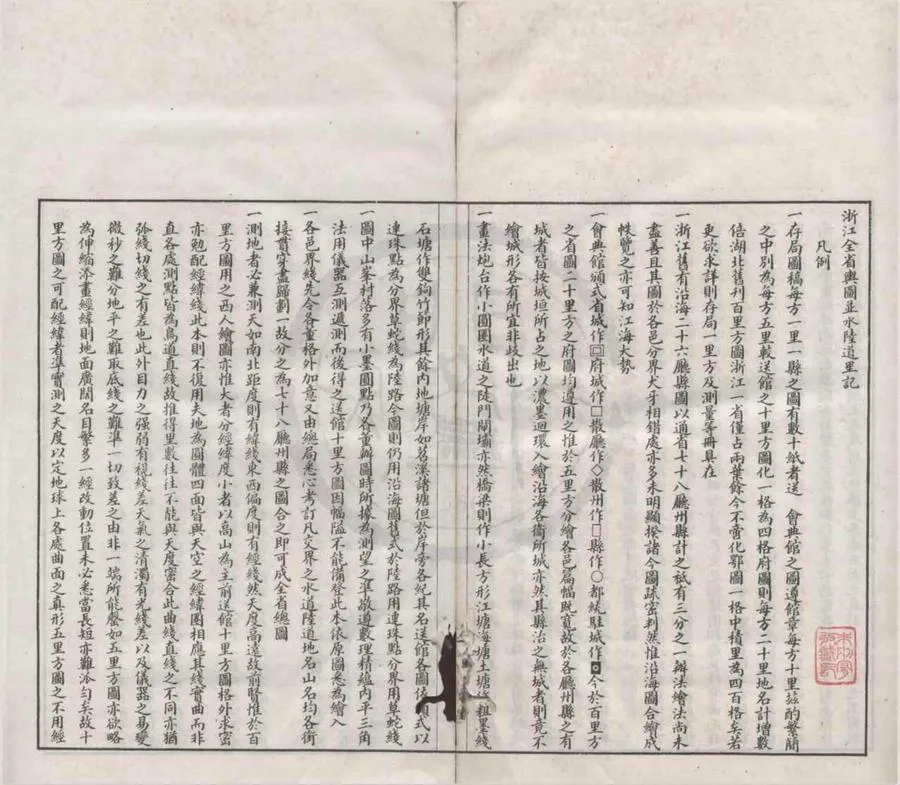 浙江全省輿圖並水陸道里記
凡例
一存局圖稿每方一里一縣之圖有數十紙者送 會典館之圖遵館章每方十里茲酌繁簡
之中別為每方五里較送館之十里方圖化一格為四格府圖則每方二十里地名計增數
倍湖北舊刊百里方圖浙江一省僅占兩葉餘今不啻化鄂圖一格中積里為四百格矣若
更欲求詳則存局一里方及測量等冊具在
一浙江舊有沿海二十六廳縣圖以通省七十八廳州縣計之祗有三分之一辦法繪法尚未
盡善且其圖於各邑分界犬牙相錯處亦多未明顯揆諸今圖疏密判然惟沿海圖合繪成
帙覽之亦可知江海大勢
一會典館頒式省城作回府城作□散廳作◇散州作▯縣作○都統駐城作◘今於百里方
之省圖二十里方之府圖均遵用之惟於五里方分繪各邑篇幅既寬故於各廳州縣之有
城者皆按城垣所占之地以濃墨迴環入繪沿海各衞所城亦然其縣治之無城者則竟不
繪城形各有所宜非歧出也
一畫法炮台作小圓圈水道之陡門閘壩亦然橋梁則作小長方形江塘海塘土塘作粗墨綫
石塘作雙鉤竹節形其餘內地塘岸如苕溪諸塘但於岸旁各紀其名送館各圖依頒式以
連珠點為分界草蛇綫為陸路今圖則仍用沿海圖舊式於陸路用連珠點分界用草蛇綫
一圖中山峯村落多有小墨圓點乃各董辦圖時所據為測望之準故道數理精蘊內平三角
法用儀器互測遞測而後得之送館十里方圖因幅隘不能備登此本依原圖悉為繪入
一各邑界綫先令各董格外加意又由總局悉心考訂凡交界之水道陸道地名山名均各銜
接貫穿盡歸劃一故分之為七十八廳州縣之圖合之即可成全省總圖
一測地者必兼測天如南北距度則有緯綫東西偏度則有經綫然天度高遠故前賢惟於百
里方圖用之西人繪圖亦惟大者分經緯度小者以高山為主前送館十里方圖格外求密
亦勉配經緯綫此本則不復用夫地為圓體四面皆與天空之經緯圈相應其綫實曲而非
直各處測點皆為鳥道直綫故推得里數往往不能與天度密合此曲綫直綫之不同亦猶
弧綫切綫之有差也此外目力之強弱有視綫差天氣之清濁有光綫差以及儀器之易變
微秒之難分地平之難取底綫之難準一切致差之由非一端所能罄如五里方圖亦欲略
為伸縮添畫經緯則地面廣闊名目繁多一經改動位置未必悉當長短亦難派勻矣故十
里方圖之可配經緯者準實測之天度以定地球上各處曲面之真形五里方圖之不用經